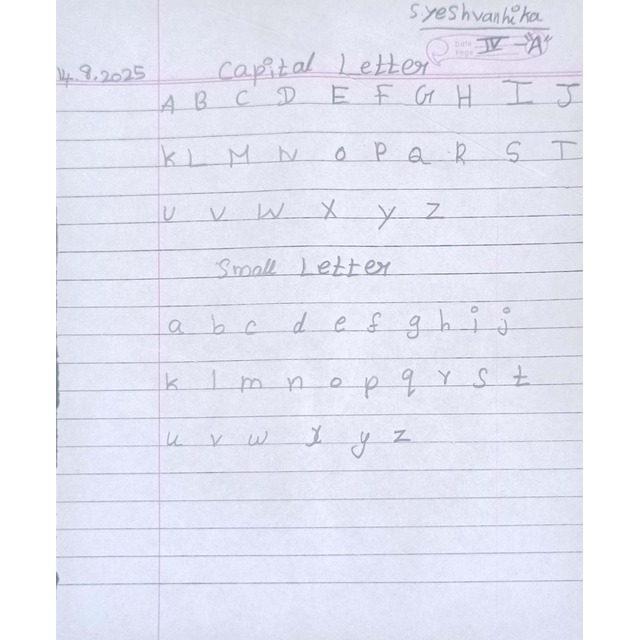 Syeshvanhika
Date
Page IV - "A"
14.8.2025 Capital Letter
A B C D E F G H I J
K L M N O P Q R S T
U V W X Y Z
Small Letter
a b c d e f g h i j
k l m n o p q r s t
u v w x y z